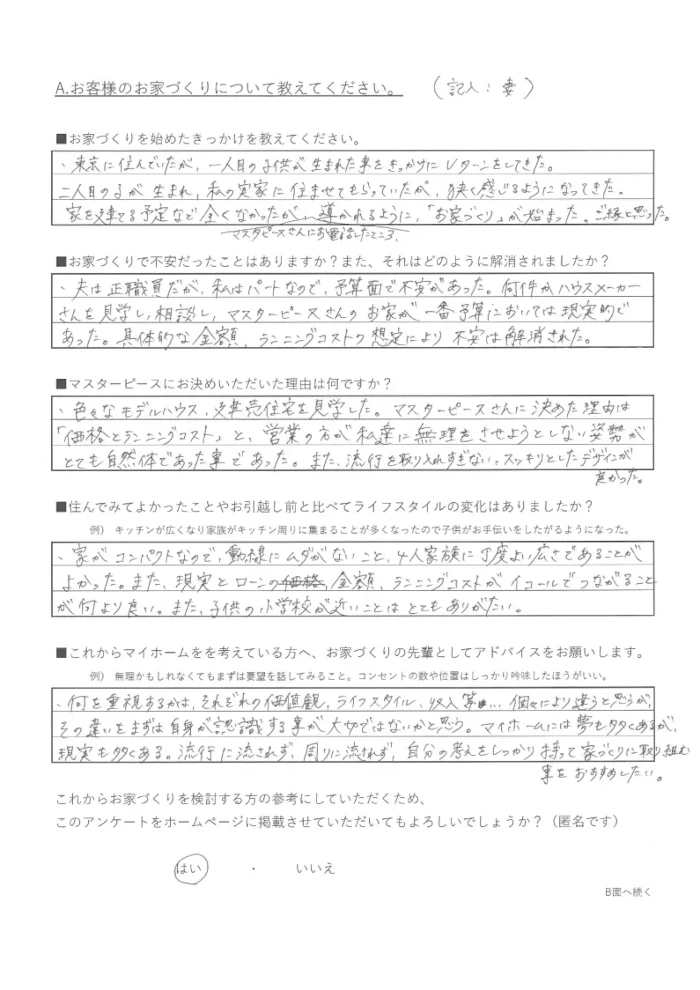 A.お客様のお家づくりについて教えてください。 （記入：妻）
■お家づくりを始めたきっかけを教えてください。
・東京に住んでいたが、一人目の子供が生まれた事をきっかけにUターンをしてきた。
二人目の子が生まれ、私の実家に住ませてもらっていたが、狭く感じるようになってきた。
家を建てる予定など全くなかったが、導かれるように、「お家づくり」が始まった。ご縁と思った。
マスタピースさんにお電話したところ、
■お家づくりで不安だったことはありますか？また、それはどのように解消されましたか？
・夫は正職員だが、私はパートなので、予算面で不安があった。何件かハウスメーカー
さんを見学し、相談し、マスターピースさんのお家が一番予算においては現実的で
あった。具体的な金額、ランニングコストの想定により不安は解消された。
■マスターピースにお決めいただいた理由は何ですか？
・色々なモデルハウス、建売住宅を見学した。マスターピースさんに決めた理由は
「価格とランニングコスト」と、営業の方が私達に無理をさせようとしない姿勢が
とても自然体であった事であった。また、流行を取り入れすぎない、スッキリとしたデザインが
良かった。
■住んでみてよかったことやお引越し前と比べてライフスタイルの変化はありましたか？
例） キッチンが広くなり家族がキッチン周りに集まることが多くなったので子供がお手伝いをしたがるようになった。
・家がコンパクトなので、動線にムダがないこと、4人家族に丁度よい広さであることが
よかった。また、現実とローンの価格、金額、ランニングコストがイコールでつながること
が何より良い。また、子供の小学校が近いことはとてもありがたい。
■これからマイホームをを考えている方へ、お家づくりの先輩としてアドバイスをお願いします。
例） 無理かもしれなくてもまずは要望を話してみること。コンセントの数や位置はしっかり吟味したほうがいい。
・何を重視するかは、それぞれの価値観、ライフスタイル、収入等…、個々により違うと思うが、
その違いをまずは自身が認識する事が大切ではないかと思う。マイホームには夢も多くあるが、
現実も多くある。流行に流されず、周りに流されず、自分の考えをしっかり持って家づくりに取り組む
事をおすすめしたい。
これからお家づくりを検討する方の参考にしていただくため、
このアンケートをホームページに掲載させていただいてもよろしいでしょうか？（匿名です）
はい ・ いいえ
B面へ続く